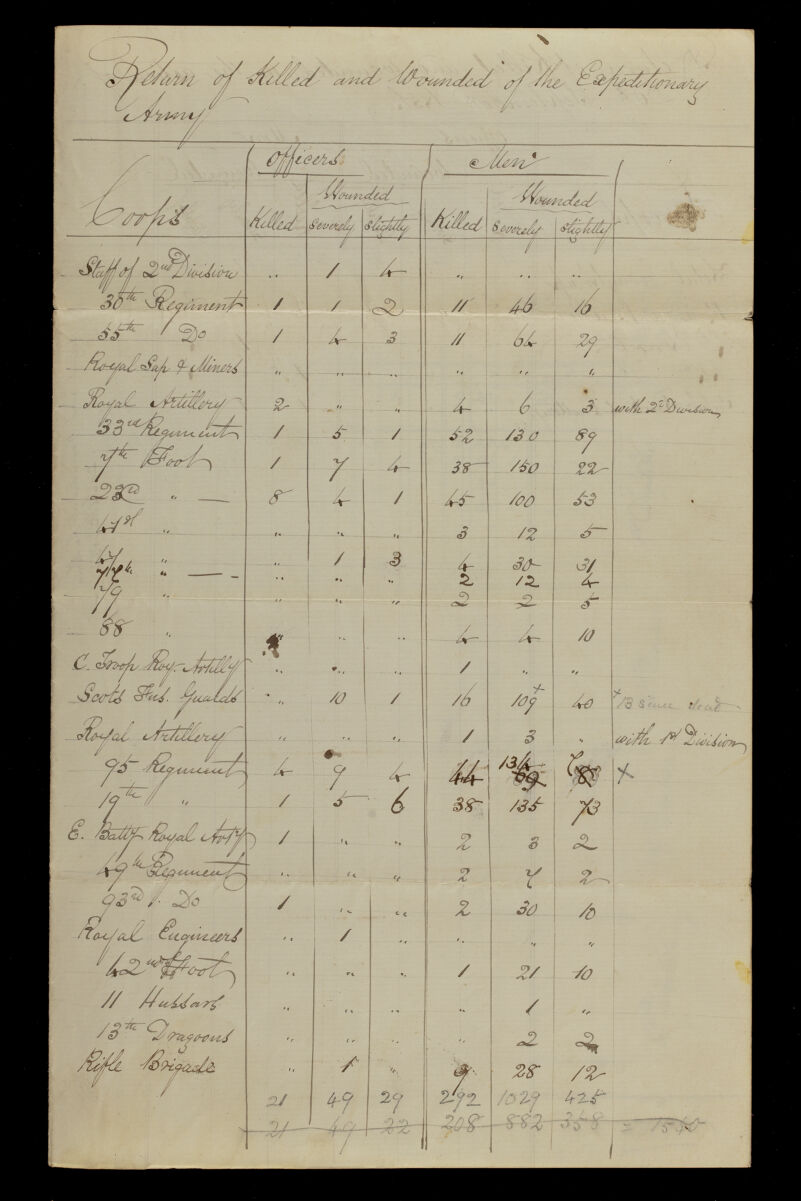 Return of Killed and Wounded of the Expeditionary
Army
Officers Men
Wounded Wounded
Coops Killed severely slightly Killed severely slightly
Staff of 2nd Division .. 1 4 " .. ..
30th Regiment 1 1 2 11 46 16
55th Do 1 4 3 11 64 29
Royal Sap & Miners " " .. " .. "
Royal Artillery 2 " " 4 6 3 with 2d Division
33rd Regiment 1 5 1 52 130 89
7th Foot 1 7 4 38 150 22
23rd " — 8 4 1 45 100 53
41st " " " " 3 12 5
47 " " 1 3 4 30 31
77th " — - .. " " 2 12 4
79 " " " " 2 2 5
88 " " .. .. 4 4 10
C. Troop Roy. Artilly .. .. .. 1 " "
Scots Fus. Guards " 10 1 16 109+ 40 + 13 since dead
Royal Artillery " " .. 1 3 " with 1st Division
95 Regiment 4 9 4 44 134 +
19th " 1 5 6 38 135 73
E. Batty Royal Arty 1 " " 2 3 2
49th Regiment .. .. " 2 7 2
93rd Do 1 .. .. 2 30 10
Royal Engineers .. 1 .. .. " "
42nd Foot " " .. 1 21 10
11 Hussars " .. .. " 1 "
13th Dragoons " .. .. " 2 2
Rifle Brigade " 1 " 9 28 12
21 49 29 292 1029 425
21 49 22 208 882 358 = 1540